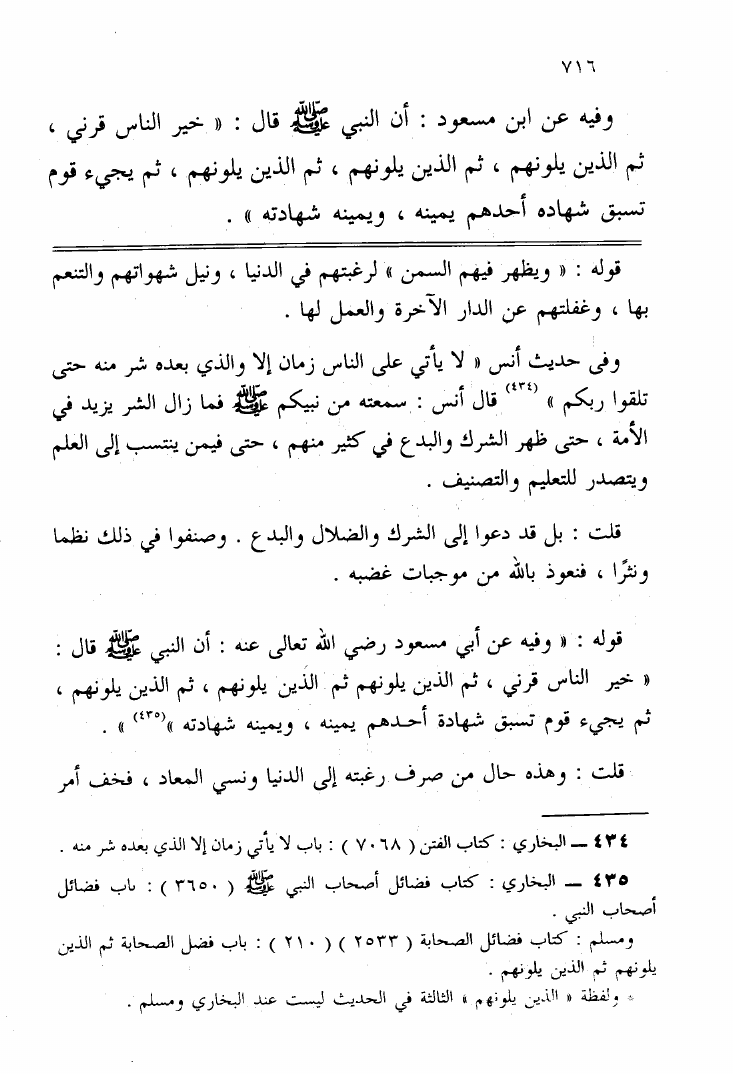 ٧١٦
وفيه عن ابن مسعود : أن النبي ﷺ قال : « خير الناس قرني ،
ثم الذين يلونهم ، ثم الذين يلونهم ، ثم الذين يلونهم ، ثم يجيء قوم
تسبق شهاده أحدهم يمينه ، ويمينه شهادته » .
قوله : « ويظهر فيهم السمن » لرغبتهم في الدنيا ، ونيل شهواتهم والتنعم
بها ، وغفلتهم عن الدار الآخرة والعمل لها .
وفى حديث أنس « لا يأتي على الناس زمان إلا والذي بعده شر منه حتى
تلقوا ربكم » (٤٣٤) قال أنس : سمعته من نبيكم ﷺ فما زال الشر يزيد في
الأمة ، حتى ظهر الشرك والبدع في كثير منهم ، حتى فيمن ينتسب إلى العلم
ويتصدر للتعليم والتصنيف .
قلت : بل قد دعوا إلى الشرك والضلال والبدع . وصنفوا في ذلك نظما
ونثرًا ، فنعوذ بالله من موجبات غضبه .
قوله : « وفيه عن أبي مسعود رضي الله تعالى عنه : أن النبي ﷺ قال :
« خير الناس قرني ، ثم الذين يلونهم ثم الذين يلونهم ، ثم الذين يلونهم ،
ثم يجيء قوم تسبق شهادة أحدهم يمينه ، ويمينه شهادته »(٤٣٥) » .
قلت : وهذه حال من صرف رغبته إلى الدنيا ونسي المعاد ، فخف أمر
٤٣٤ ــ البخاري : كتاب الفتن ( ٧٠٦٨ ) : باب لا يأتي زمان إلا الذي بعده شر منه .
٤٣٥ ــ البخاري : كتاب فضائل أصحاب النبي ﷺ ( ٣٦٥٠ ) : باب فضائل
أصحاب النبي .
ومسلم : كتاب فضائل الصحابة ( ٢٥٣٣ ) ( ٢١٠ ) : باب فضل الصحابة ثم الذين
يلونهم ثم الذين يلونهم .
* ولفظة « الذين يلونهم » الثالثة في الحديث ليست عند البخاري ومسلم .